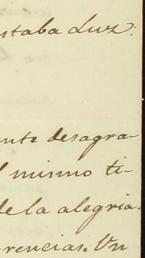 staba Luz.
nte desagra-
l mismo ti-
de la alegria.
rencias. Un